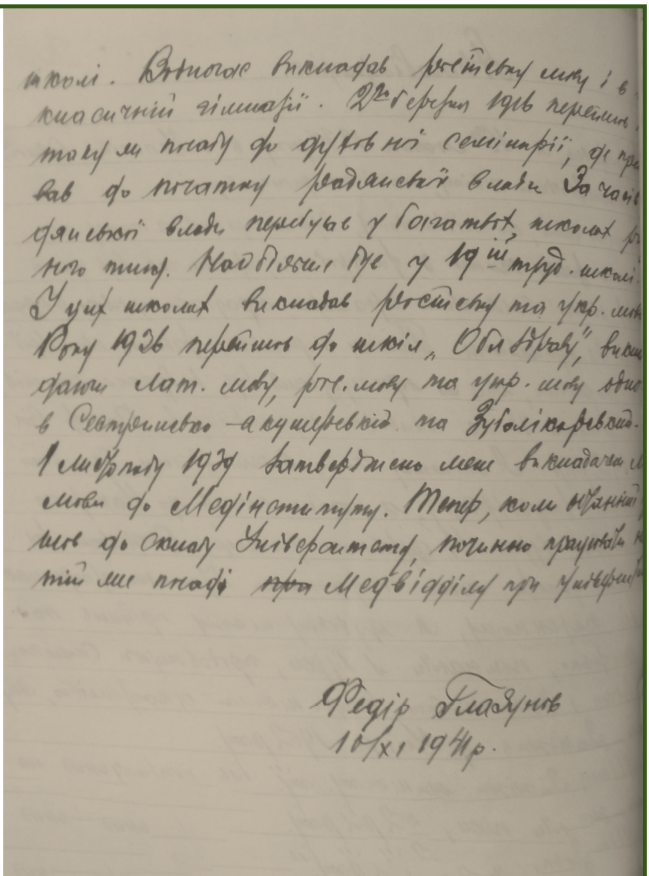 школі. Водночас викладав російську мову і в
класичній гімназії. 2го березня 1918 перейшов
таку ж посаду до духовної семінарії, де пра
вав до початку радянської влади За часів
дянської влади перебував у багатьох школах рі
ного типу. Найбільше був у 19ій труд. школі.
У цих школах викладав російську та укр. мов
Року 1936 перейшов до шкіл „Облздраву",
лат. мову, рос. мову та укр. мову
в Сестринсько-акушерській та Зуболікарській.
1 листопаду 1939 затверджено мене викладачем
мови до Медінституту. Тепер, коли останній
шов до складу Університету, починаю працювати
тій же посаді Медвідділу при Університ
Федір Глазунов
10/XI 1941 р.